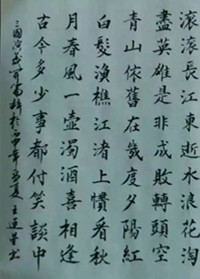 滾滾長江東逝水浪花淘
盡英雄是非成敗轉頭空
青山依舊在幾度夕陽紅
白髮漁樵江渚上慣看秋
月春風一壺濁酒喜相逢
古今多少事都付笑談中
三國演義 年 夏 王 書